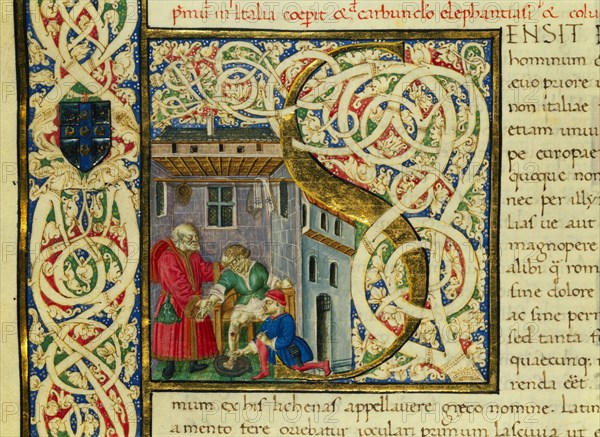 primū in Italia cœpit & d carbunclo elephantiasi & colu
SENSIT F
hominum
ęuo priore
non italiae
etiam uniu
pe europae
quoque non
nec per illy
lias ue aut
magnopere
alibi q̄ rom
sine dolore
ac sine per
sed tanta f
quaecunq; m
renda cēt.
mum ex his lichenas appellauere gręco nomine. Latin
a mento fere oriebatur ioculari primum lasciuia ut e